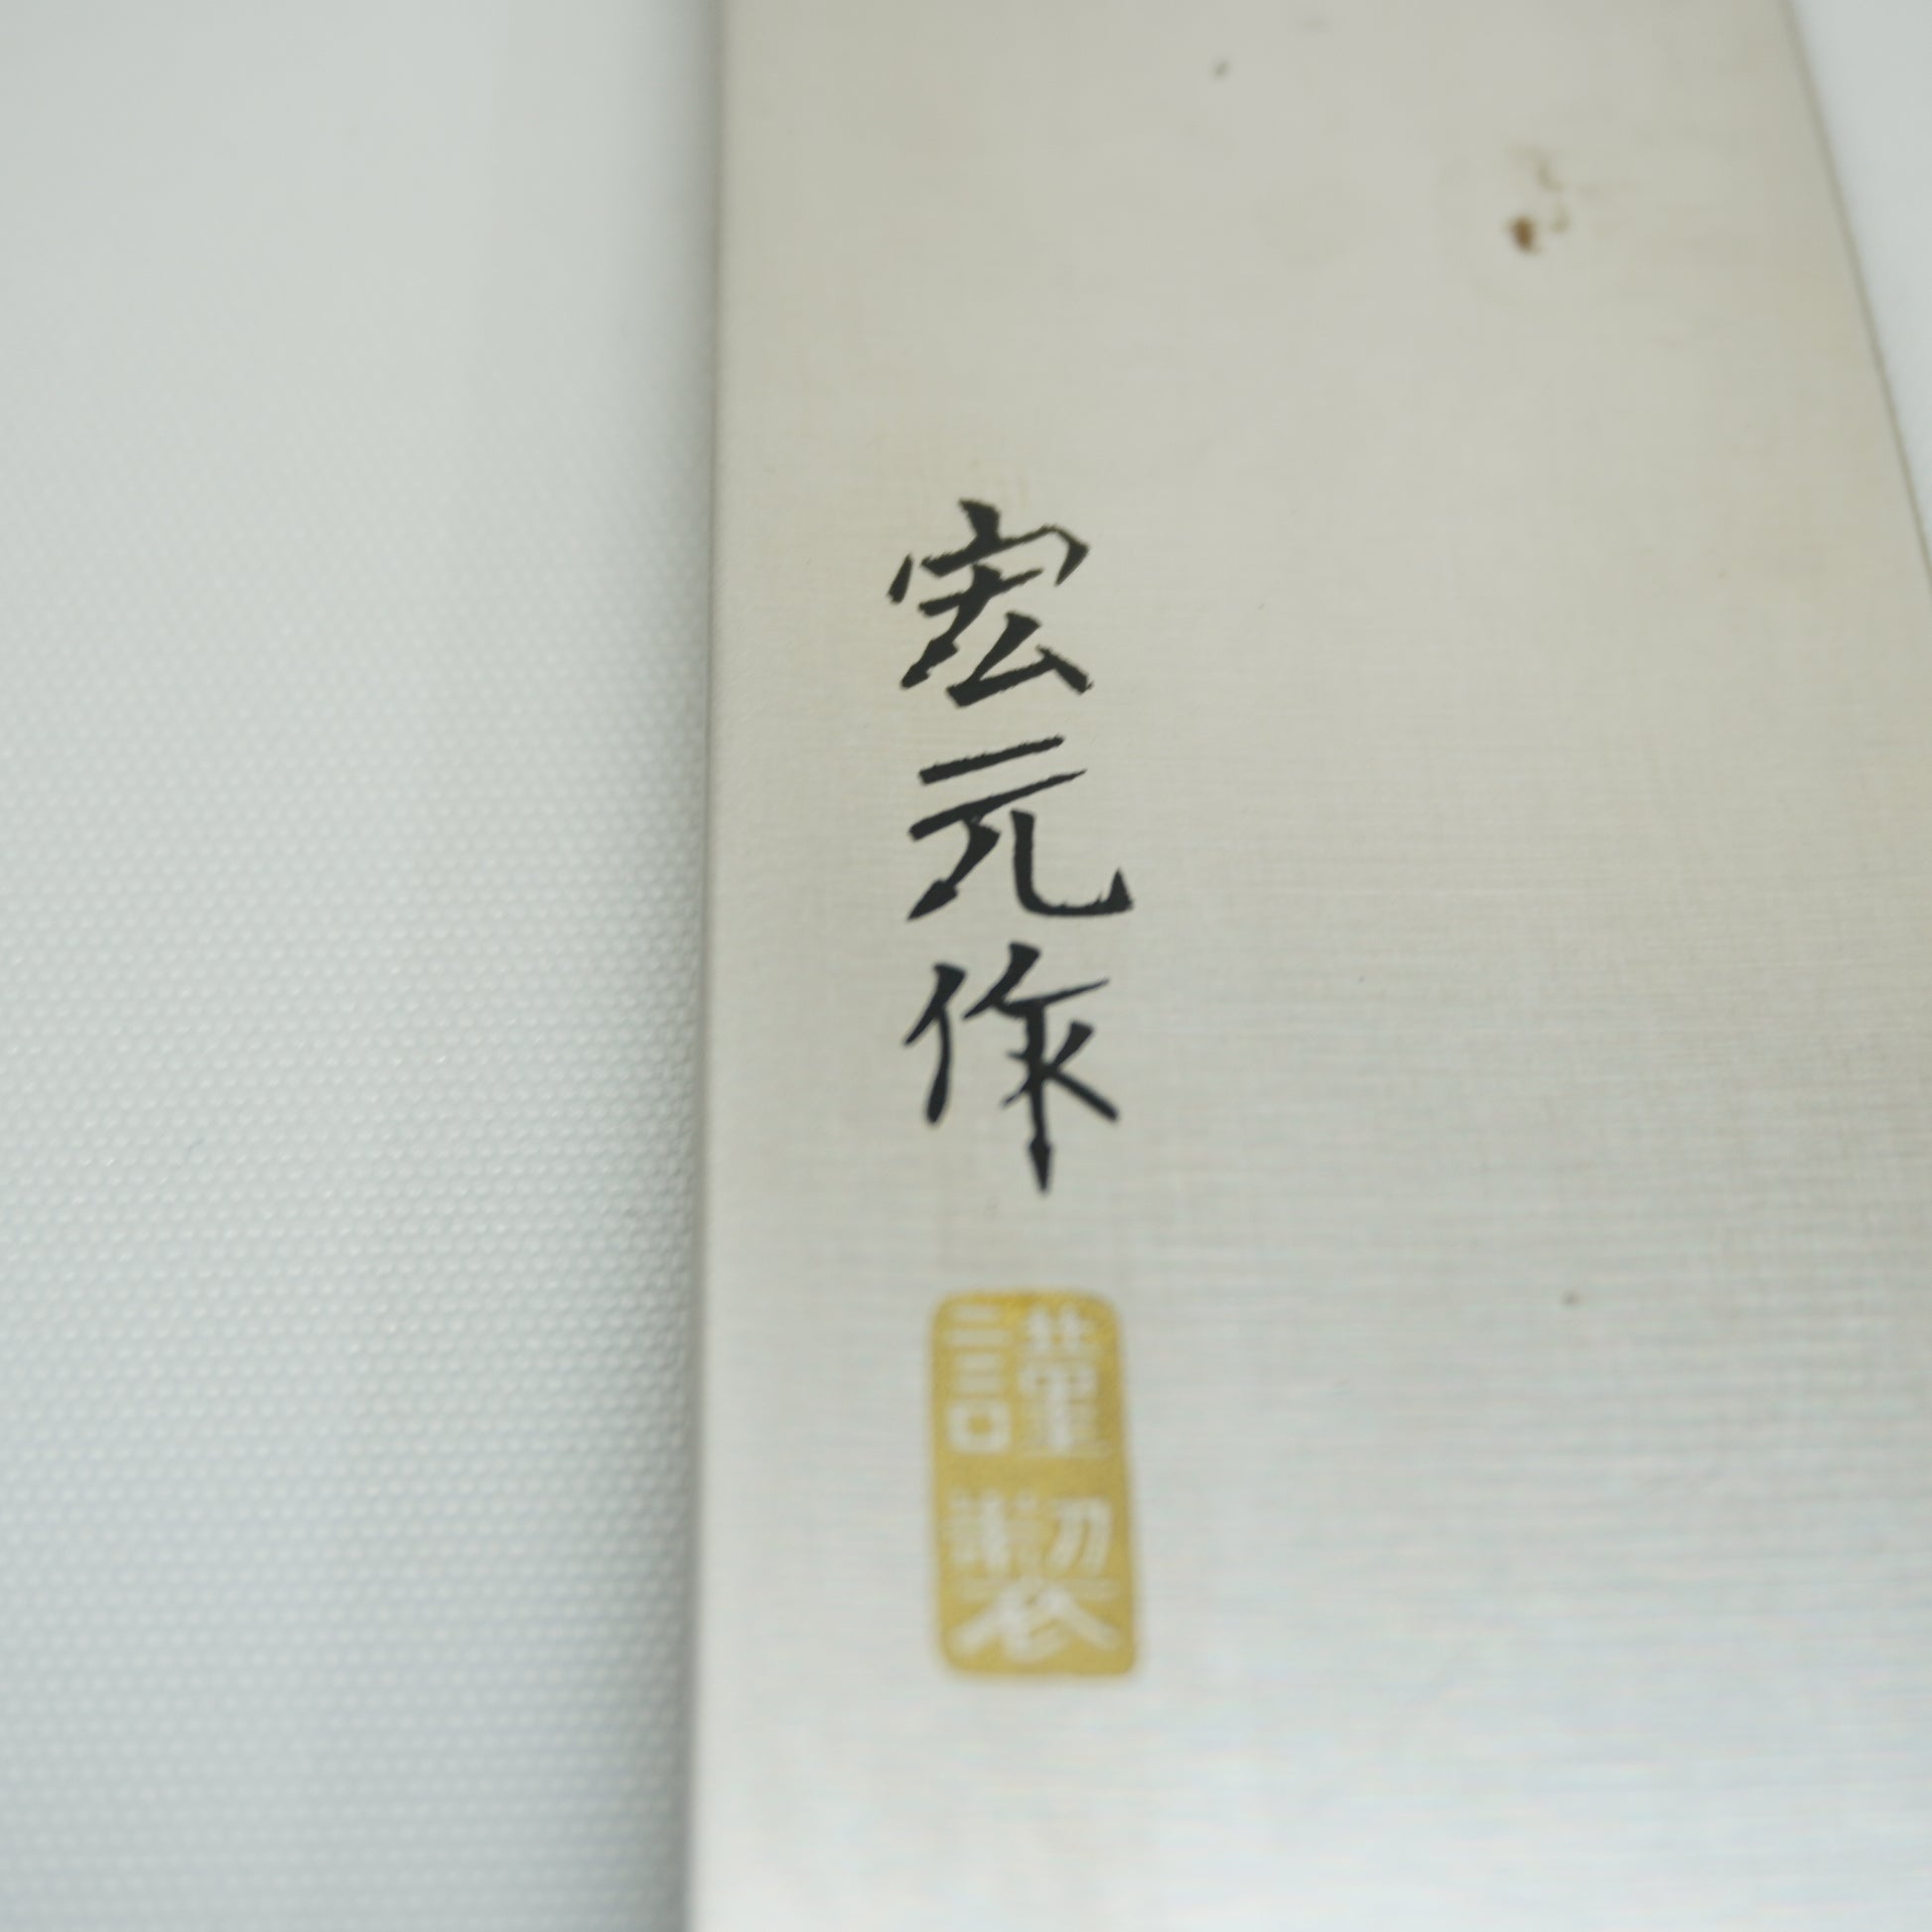 宏元作
謹製